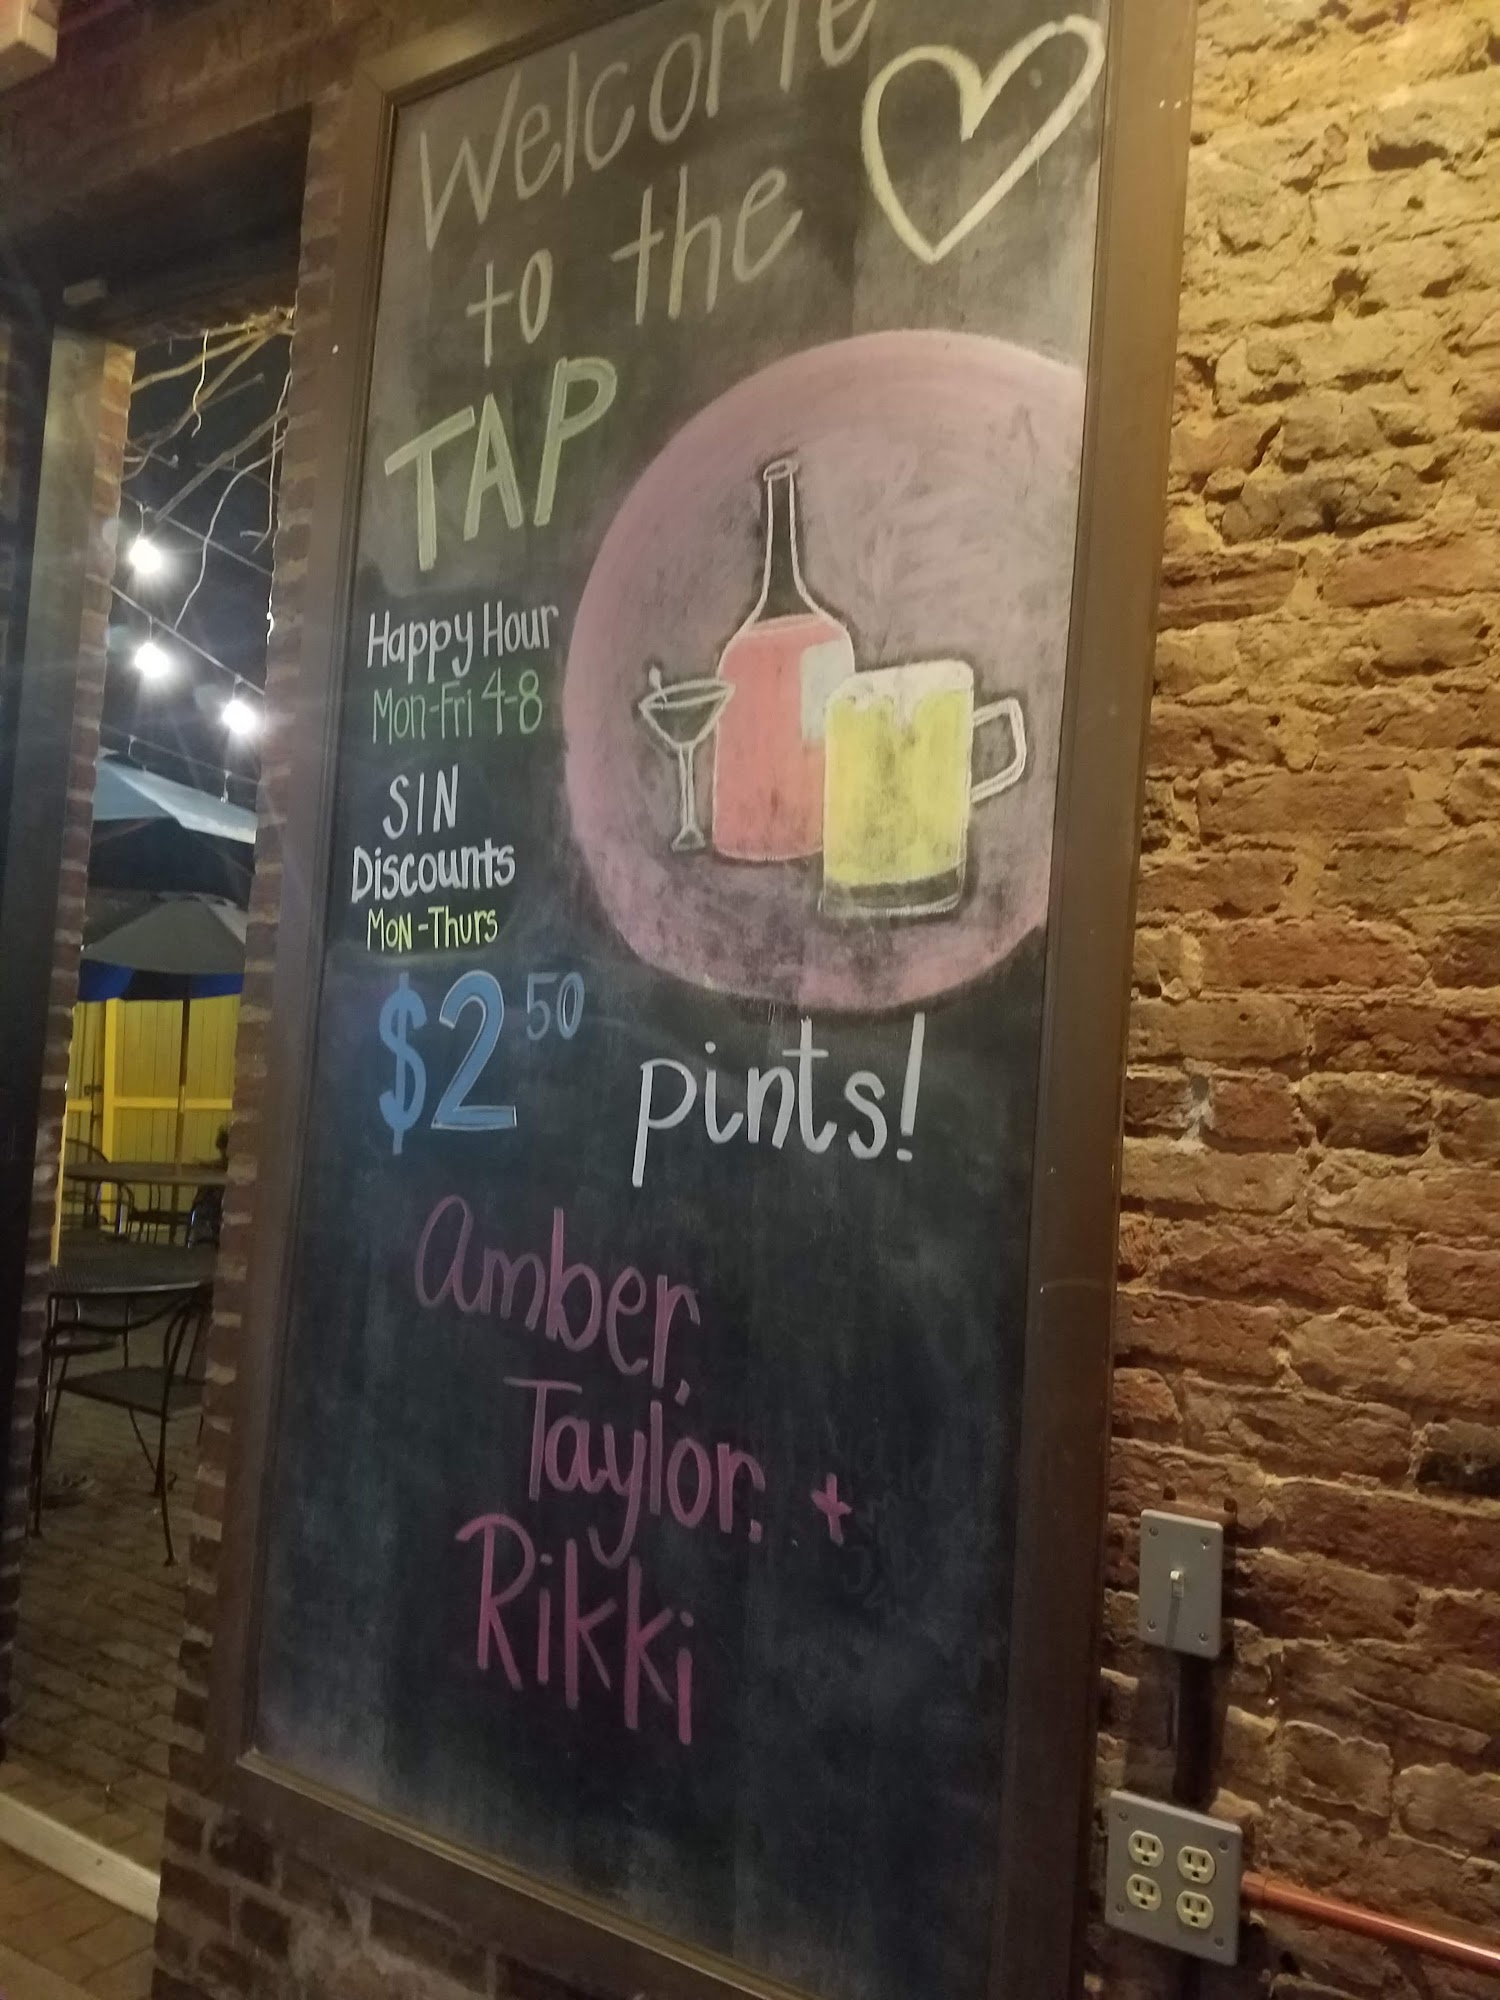 Welcome
to the
TAP
Happy Hour
Mon-Fri 4-8
SIN
Discounts
Mon-Thurs
$2 50 pints!
Amber,
Taylor, +
Rikki